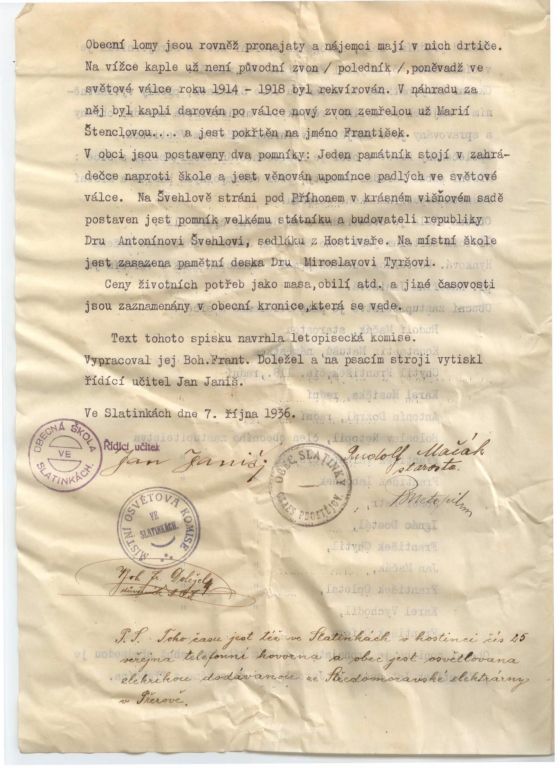 Obecní lomy jsou rovněž pronajaty a nájemci mají v nich drtiče.
Na vížce kaple už není původní zvon / poledník /, poněvadž ve
světové válce roku 1914 - 1918 byl rekvírován. V náhradu za
něj byl kapli darován po válce nový zvon zemřelou už Marií
Štenclovou.... a jest pokřtěn na jméno František.
V obci jsou postaveny dva pomníky: Jeden památník stojí v zahrá-
dečce naproti škole a jest věnován upomínce padlých ve světové
válce. Na Švehlově stráni pod Příhonem v krásném višňovém sadě
postaven jest pomník velkému státníku a budovateli republiky
Dru Antonínovi Švehlovi, sedláku z Hostivaře. Na místní škole
jest zasazena pamětní deska Dru Miroslavovi Tyršovi.
Ceny životních potřeb jako masa, obilí atd. a jiné časovosti
jsou zaznamenány v obecní kronice, která se vede.
Text tohoto spisku navrhla letopisecká komise.
Vypracoval jej Boh. Frant. Doležel a na psacím stroji vytiskl
řídící učitel Jan Janiš.
Ve Slatinkách dne 7. října 1936.
OBECNÁ ŠKOLA VE SLATINKÁCH.
Řídící učitel
Jan Janiš
OBEC SLATINKY
OKRES PROSTĚJOV.
Rudolf Mačák
starosta.
MÍSTNÍ OSVĚTOVÁ KOMISE
VE SLATINKÁCH.
Boh. Fr. Doležel
P.S. Toho času jest též ve Slatinkách v hostinci čís 25
veřejná telefonní hovorna a obec jest osvětlována
elektrikou dodávanou ze Středomoravské elektrárny
v Přerově.